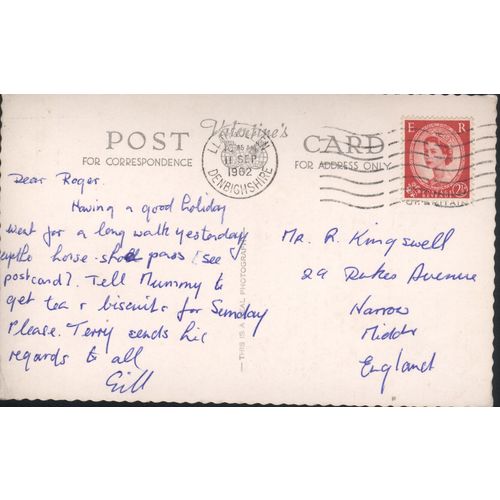 Valentine's
POST CARD
FOR CORRESPONDENCE
FOR ADDRESS ONLY
11 SEP
1962
DENBIGHSHIRE
E R
Dear Roger.
Having a good holiday
went for a long walk yesterday
up the horse shoe pass (see
postcard). Tell Mummy to
get tea & biscuits for Sunday
Please. Terry sends his
regards to all
Gill
THIS IS A REAL PHOTOGRAPH
Mr. R. Kingswell
29 Dukes Avenue
Harrow
Middx
England